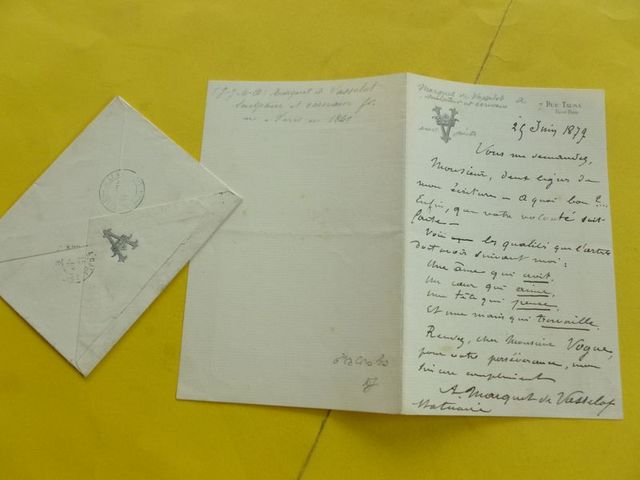 Marquet de Vasselot
sculpteur et écrivain
7 Rue Talma
25 Juin 1879
Vous me demandez,
Monsieur, deux lignes de
mon écriture — A quoi bon ?...
Enfin, que votre volonté soit
faite —
Voici — les qualités que l'artiste
doit avoir suivant moi :
Une âme qui croit,
Un cœur qui aime,
Une tête qui pense
Et une main qui travaille.
Recevez, cher Monsieur Vogue,
pour votre persévérance, mon
sincère compliment
A. Marquet de Vasselot
Statuaire
Marquet de Vasselot
sculpteur et écrivain
à Paris en 1840